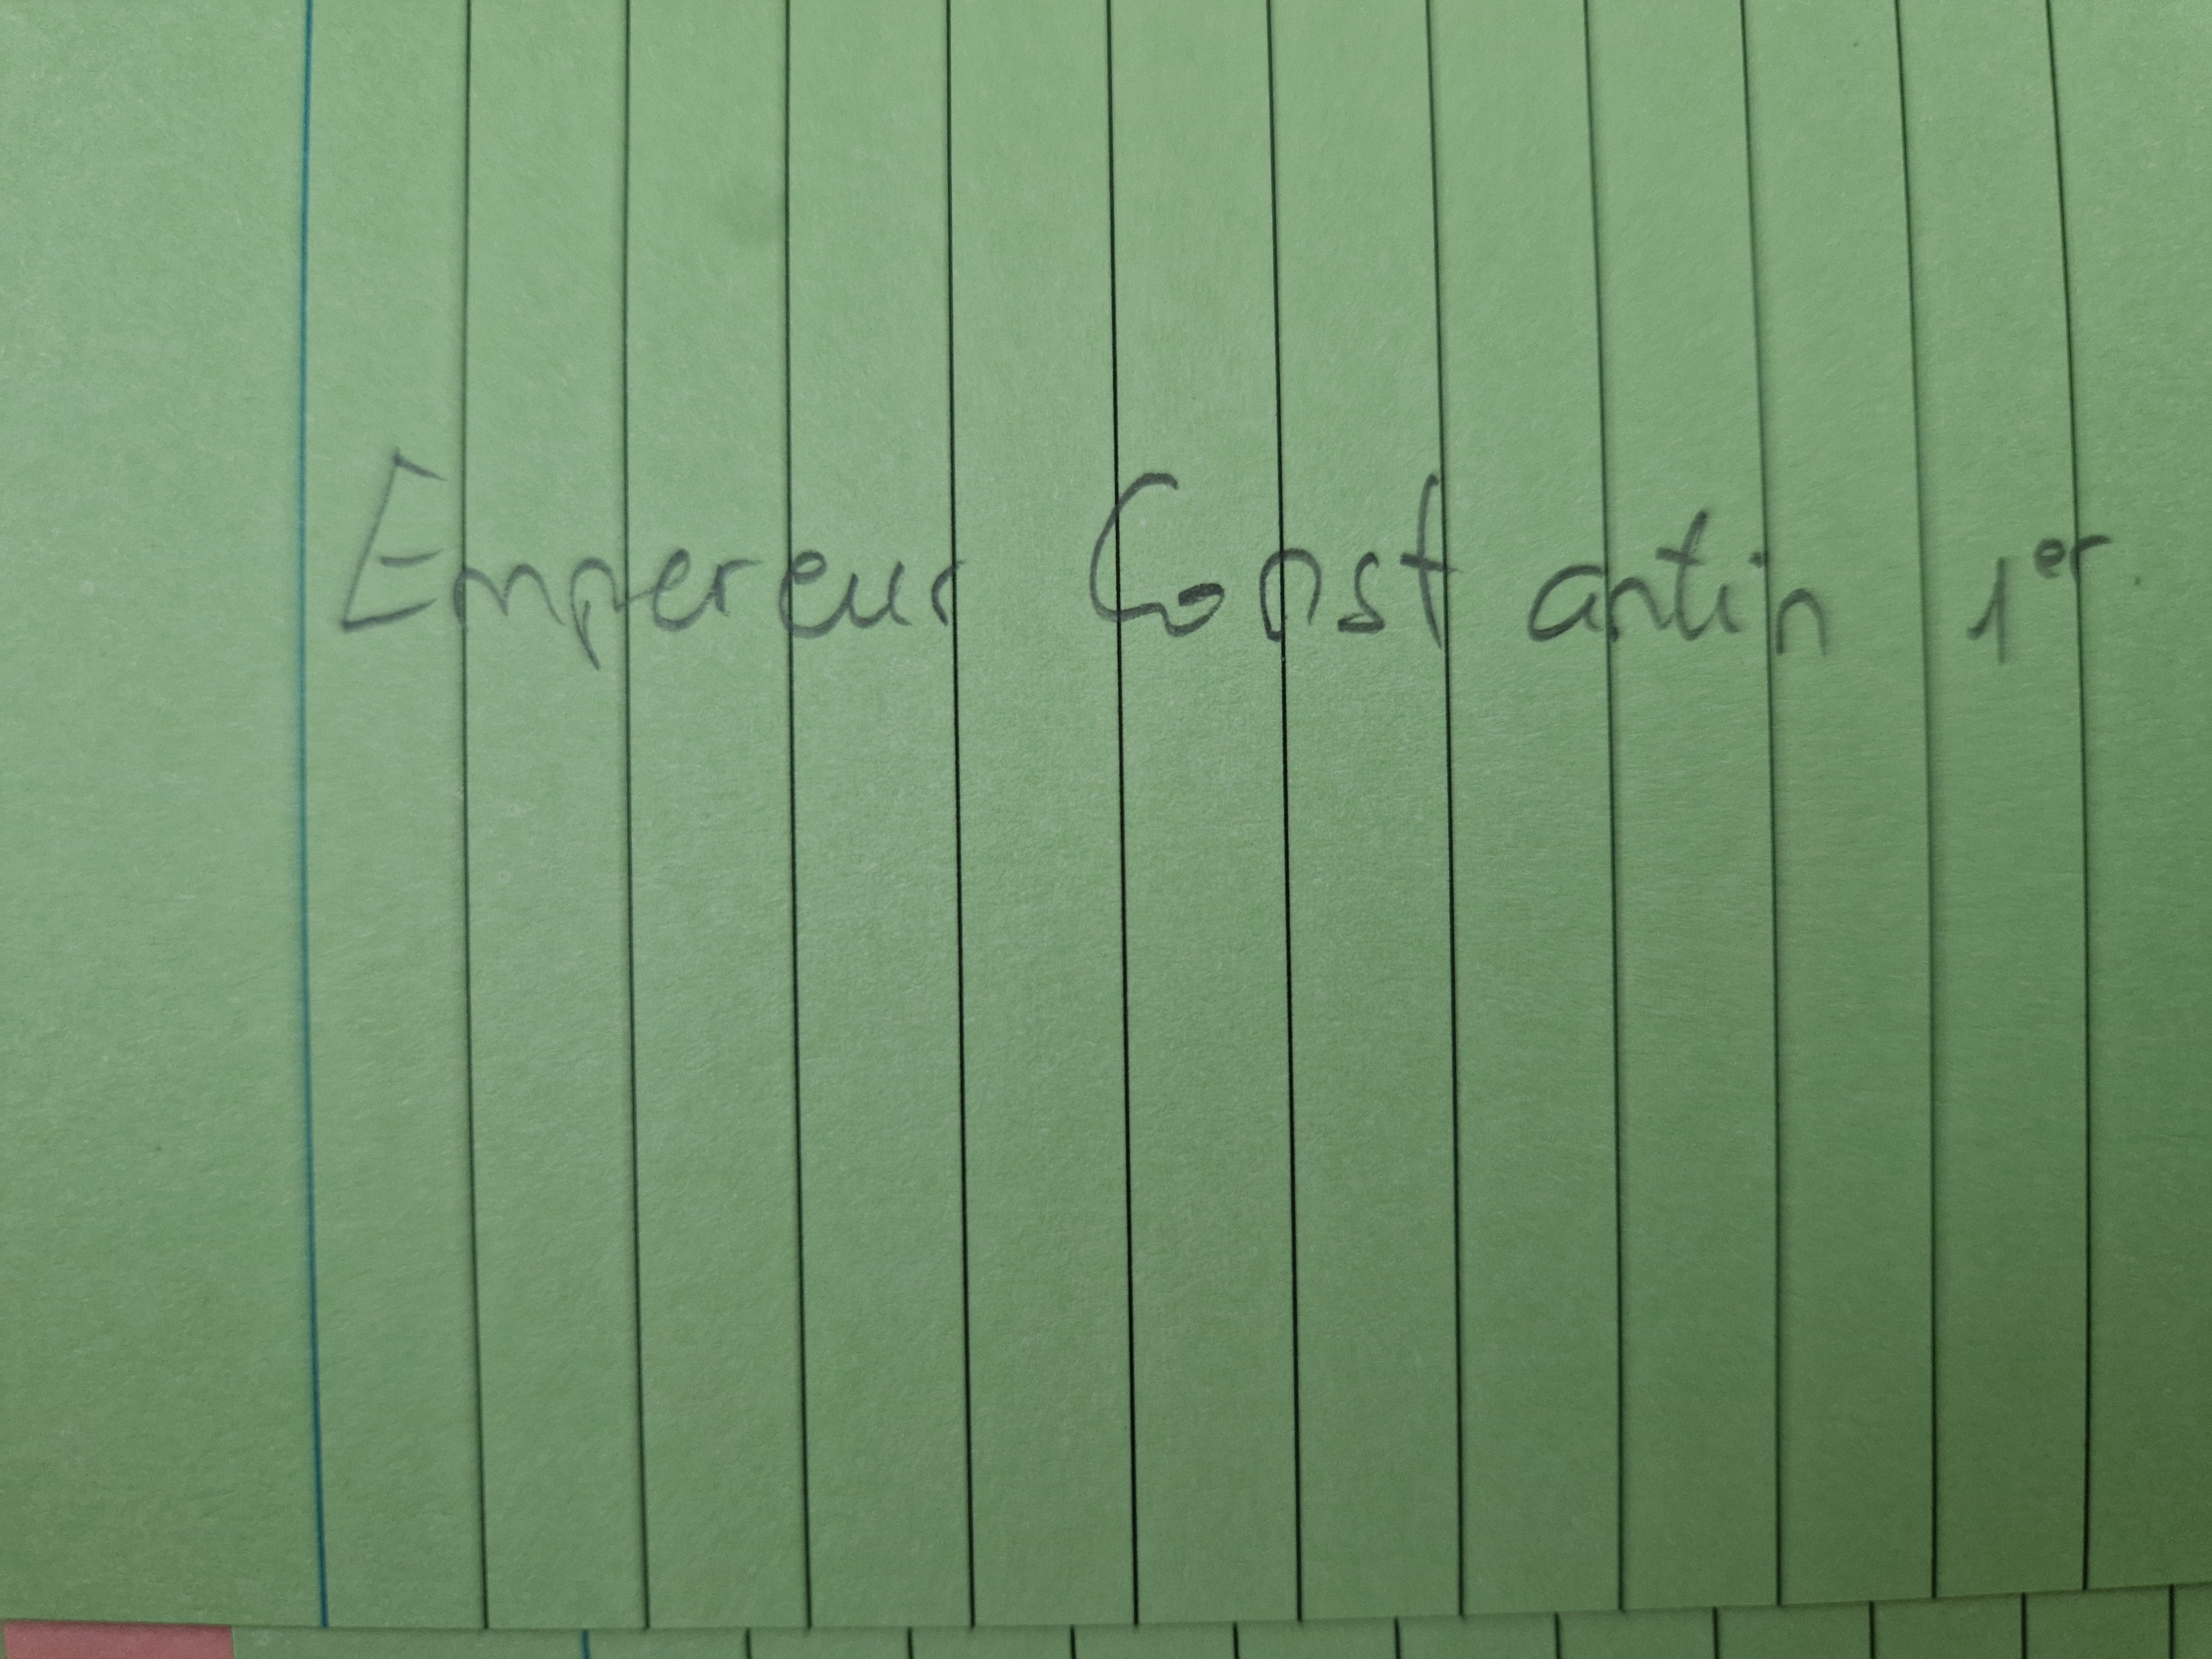 Empereur Constantin 1er